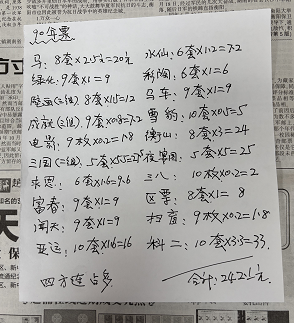 90年票
马: 8套×2.5元=20元 水仙: 6套×1.2=7.2
绿化: 9套×1=9 彩陶: 6套×1=6
壁画(三组) 8套×1.5=12 马车: 9套×1=9
成就(三组) 9套×0.8=7.2 雪豹: 10套×0.5=5
电影: 9枚×0.2=1.8 衡山: 8套×3=24
三国(二组) 5套×5.5=27.5 夜宴图: 5套×5=25
求恩: 6套×1.6=9.6 三八: 10套×0.2=2
富春: 9套×1=9 区票: 8套×1=8
闹天: 9套×1=9 扫盲: 9枚×0.2=1.8
亚运: 10套×1.6=16 科二: 10套×3.3=33
四方连占多 合计: 242.1元